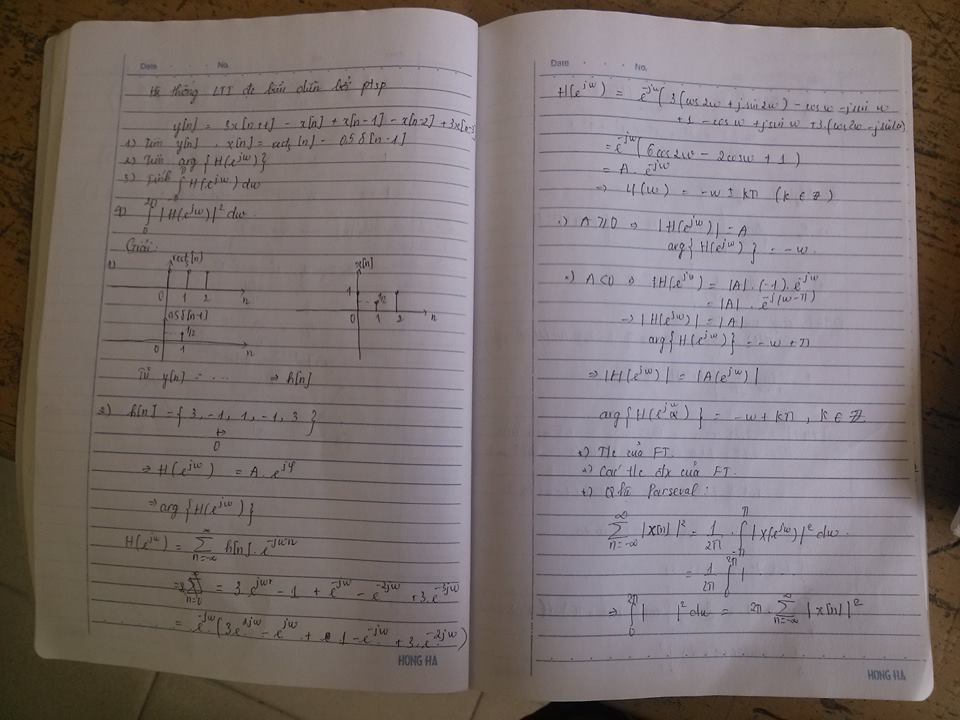 Date . . . No.
Hệ thống LTI đc biểu diễn bởi ptsp
y[n] = 3x[n+1] - x[n] + x[n-1] - x[n-2] + 3x[n-3]
1) Tìm y[n], x[n] = rect3[n] - 0.5 δ[n-1]
2) Tìm arg{H(e^jω)}
3) Tính ∫ H(e^jω) dω
4) ∫ |H(e^jω)|² dω
0
Giải:
1) rect3[n]
0 1 2 n
0.5δ[n-1]
1/2
0 1 n
x[n]
1 1/2
0 1 2 n
Từ y[n] = .... ⇒ h[n]
2) h[n] = {3, -1, 1, -1, 3}
0
⇒ H(e^jω) = A.e^jφ
⇒ arg{H(e^jω)}
H(e^jω) = ∑ n=-∞ ∞ h[n].e^-jωn
= 3.e^jω - 1 + e^-jω - e^-2jω + 3.e^-3jω
= e^-jω (3e^2jω - e^jω + 1 - e^-jω + 3.e^-2jω)
HONG HA
Date . . . No.
H(e^jω) = e^-jω (3(cos2ω + jsin2ω) - cosω - jsinω
+ 1 - cosω + jsinω + 3.(cos2ω - jsin2ω)
= e^-jω (6cos2ω - 2cosω + 1)
= A.e^-jω
⇒ φ(ω) = -ω ± kπ (k ∈ Z)
*) A ≥ 0 ⇒ |H(e^jω)| = A
arg{H(e^jω)} = -ω
*) A < 0 ⇒ H(e^jω) = |A|.(-1).e^-jω
= |A|.e^-j(ω-π)
→ |H(e^jω)| = |A|
arg{H(e^jω)} = -ω + π
⇒ |H(e^jω)| = |A(e^jω)|
arg{H(e^jω)} = -ω + kπ, k ∈ Z
*) T/c của FT.
*) Các t/c đx của FT.
*) Parseval:
∑ n=-∞ ∞ |x[n]|² = 1/2π . ∫ -π π |X(e^jω)|² dω
= 1/2π ∫ 0 2π |
⇒ ∫ 0 2π | |² dω = 2π. ∑ n=-∞ ∞ |x[n]|²
HONG HA